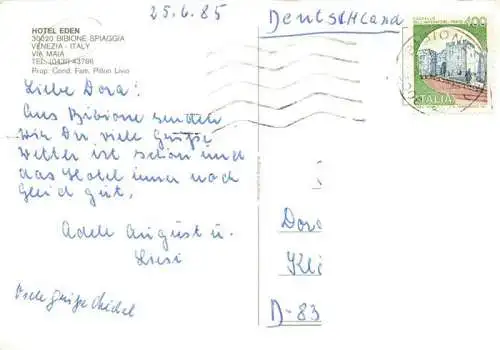 25.6.85
Deutschland
HOTEL EDEN
30020 BIBIONE SPIAGGIA
VENEZIA - ITALY
VIA MAIA
TEL. (0431) 43786
Prop. Cond. Fam. Pilon Livio
400
ITALIA
Liebe Dora!
Aus Bibione senden
wir Dir viele Grüße
Wetter ist schön und
das Hotel immer noch
Gleich gut.
Adele August u.
Liesi
Viele Grüße
Dora
Kli
D-83